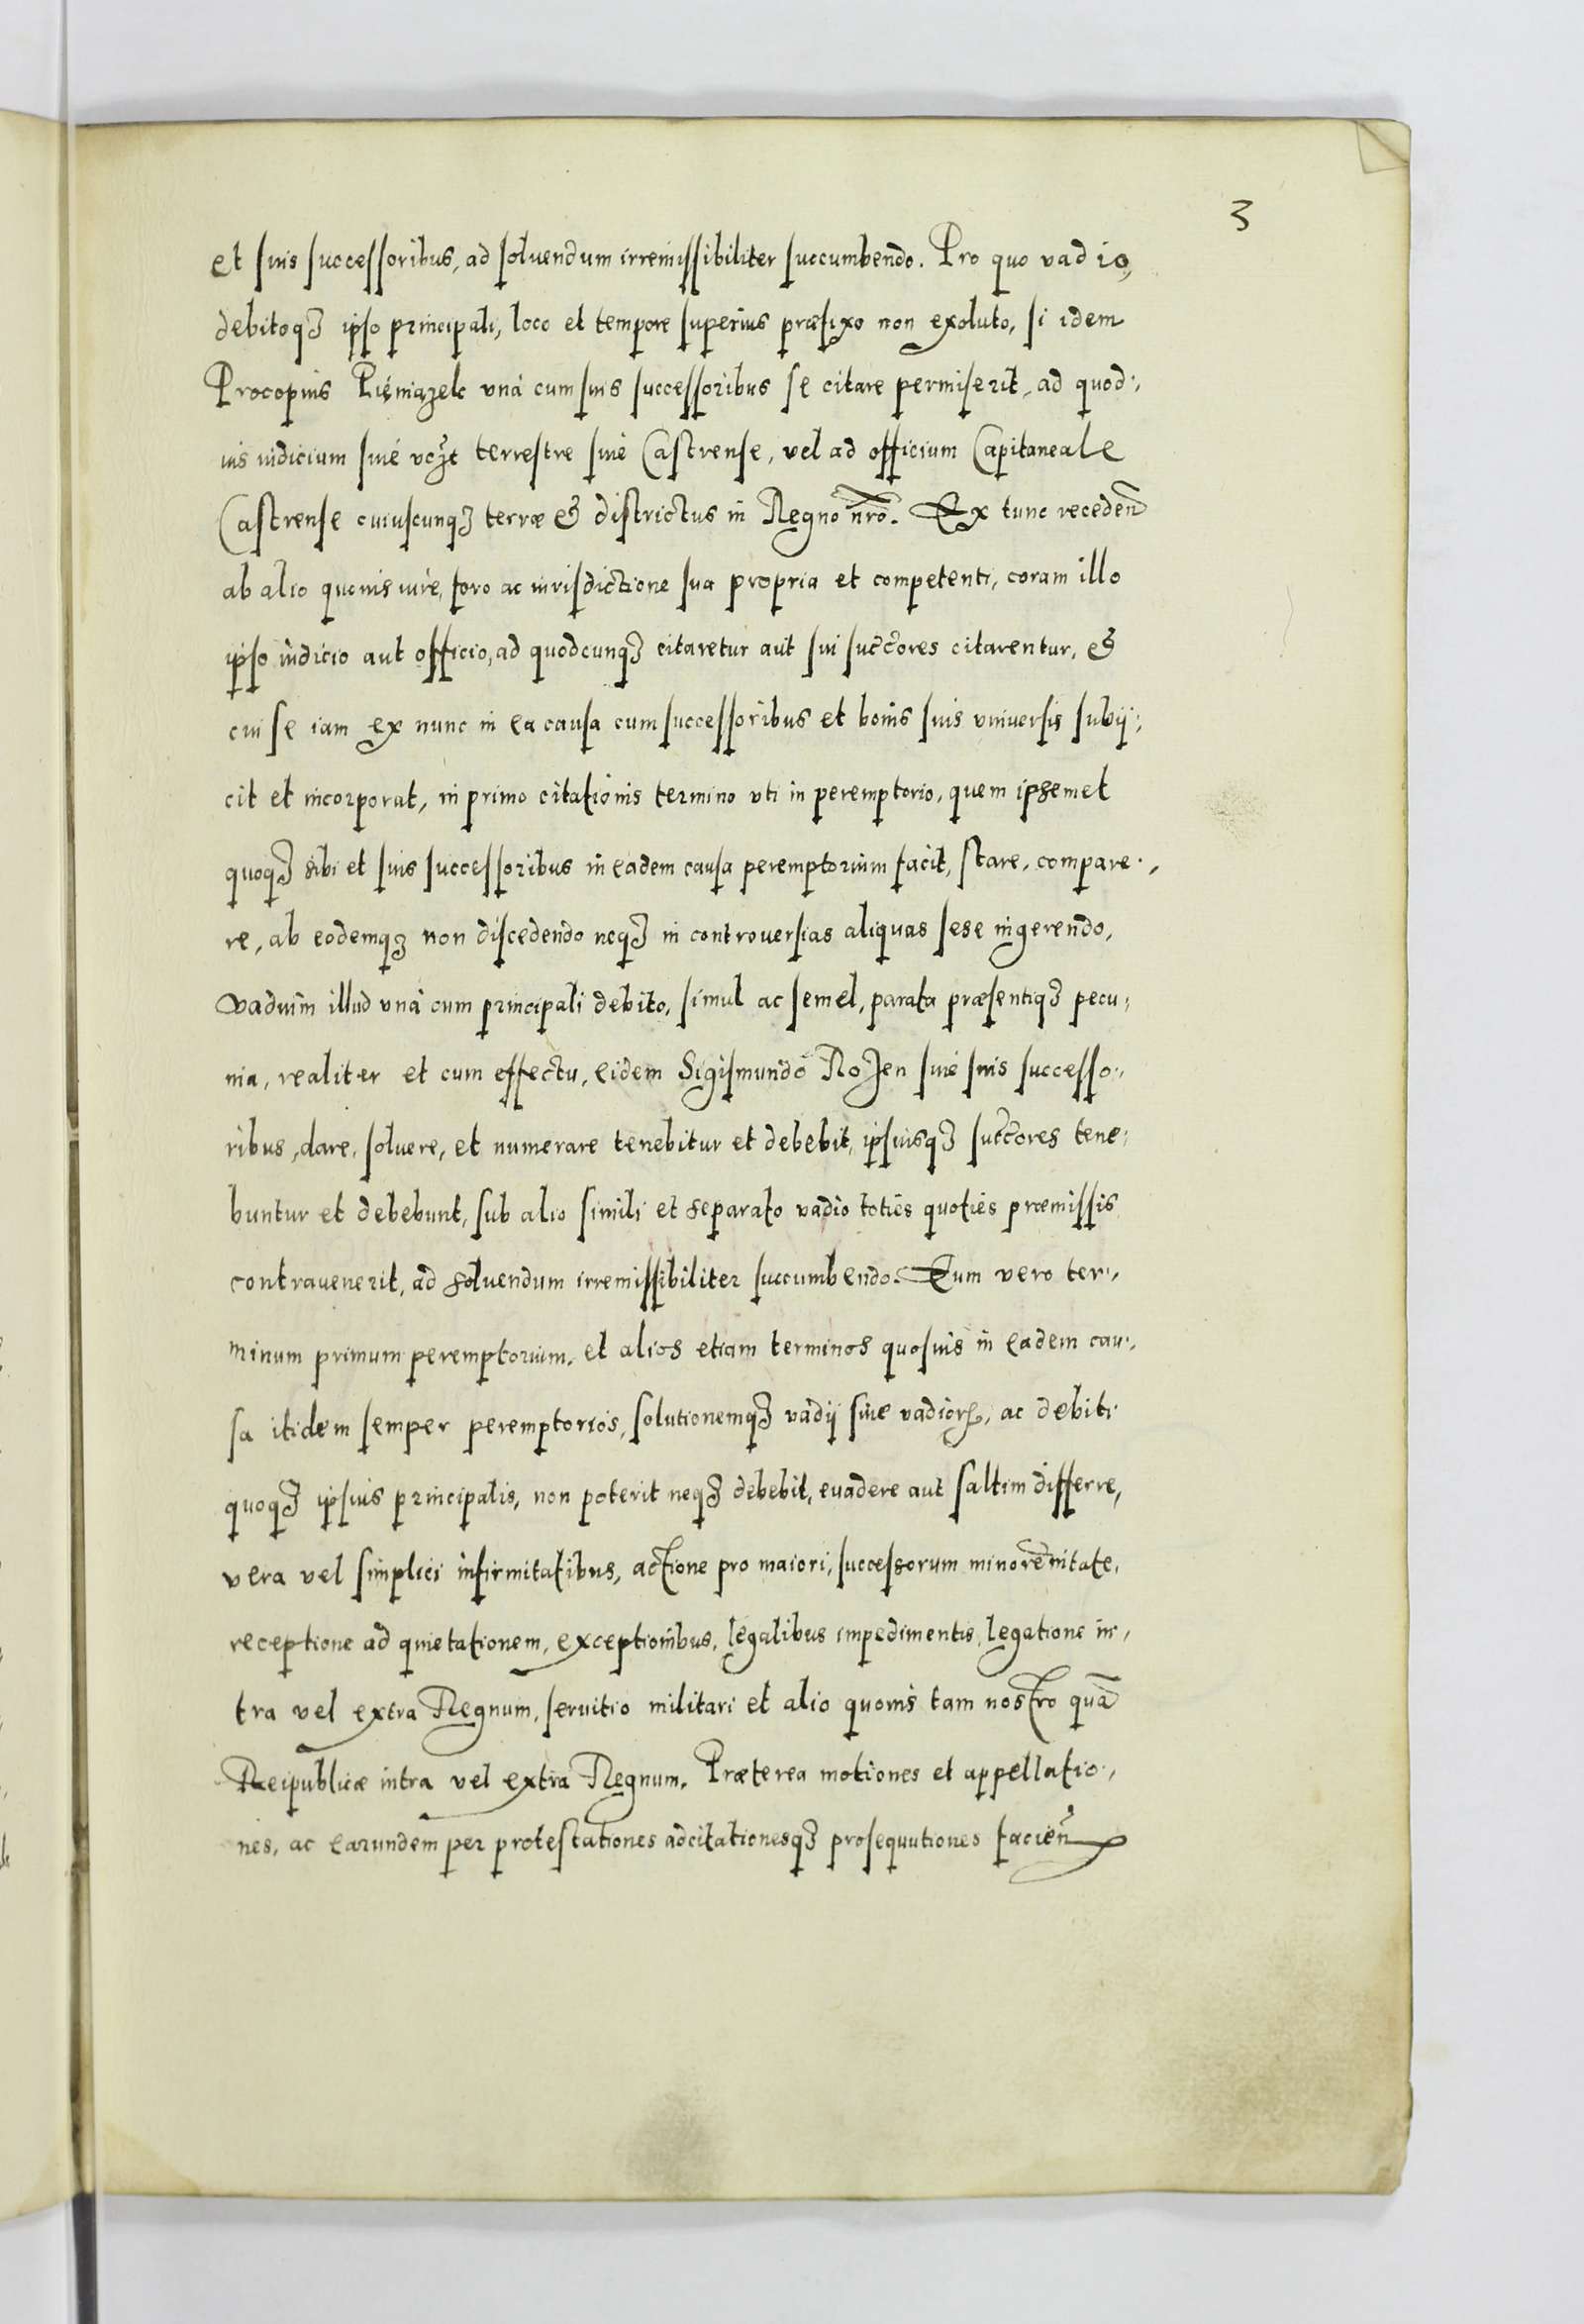 3
et suis successoribus, ad soluendum irremissibiliter succumbendo. Pro quo vadio,
debitoqꝫ ipso principali, loco et tempore superius præfixo non exoluto, si idem
Procopius Pięniązek vnà cum suis successoribus se citare permiserit, ad quod:,
uis iudicium siué terrestre siuè Castrense, vel ad officium Capitaneale
Castrense cuiuscunqꝫ terræ & districtus in Regno nr̃o. Ex tunc recedeñ
ab alio quouis iure, foro ac iurisdictione sua propria et competenti, coram illo
ipso iudicio aut officio, ad quodcunqꝫ citaretur aut sui succ̃ores citarentur, &
cui se iam ex nunc in ea causa cum successoribus et bonis suis vniuersis subij:,
cit et incorporat, in primo citationis termino vti in peremptorio, quem ipsemet
quoqꝫ sibi et suis successoribus in eadem causa peremptorium facit, stare, compare:,
re, ab eodemqꝫ non discedendo neqꝫ in controuersias aliquas sese ingerendo,
vadium illud vnà cum principali debito, simul ac semel, parata præsentiqꝫ pecu:,
nia, realiter et cum effectu, eidem Sigismundo Rożen siué suis successo:,
ribus, dare, soluere, et numerare tenebitur et debebit, ipsiusqꝫ succ̃ores tene:,
buntur et debebunt, sub alio simili et separato vadio toties quoties præmissis
contrauenerit, ad soluendum irremissibiliter succumbendo. Eum vero ter:,
minum primum peremptorium, et alios etiam terminos quosuis in eadem cau:,
sa itidem semper peremptorios, solutionemqꝫ vadij siue vadioꝝ, ac debiti
quoqꝫ ipsius principalis, non poterit neqꝫ debebit, euadere aut saltim differre,
vera vel simplici infirmitatibus, actione pro maiori, successorum minorennitate,
receptione ad quietationem, exceptionibus, legalibus impedimentis, legatione in:,
tra vel extra Regnum, seruitio militari et alio quouis tam nostro quã
Reipublicæ intra vel extra Regnum. Præterea motiones et appellatio:,
nes, ac earundem per protestationes adcitationesqꝫ prosequutiones facieñ